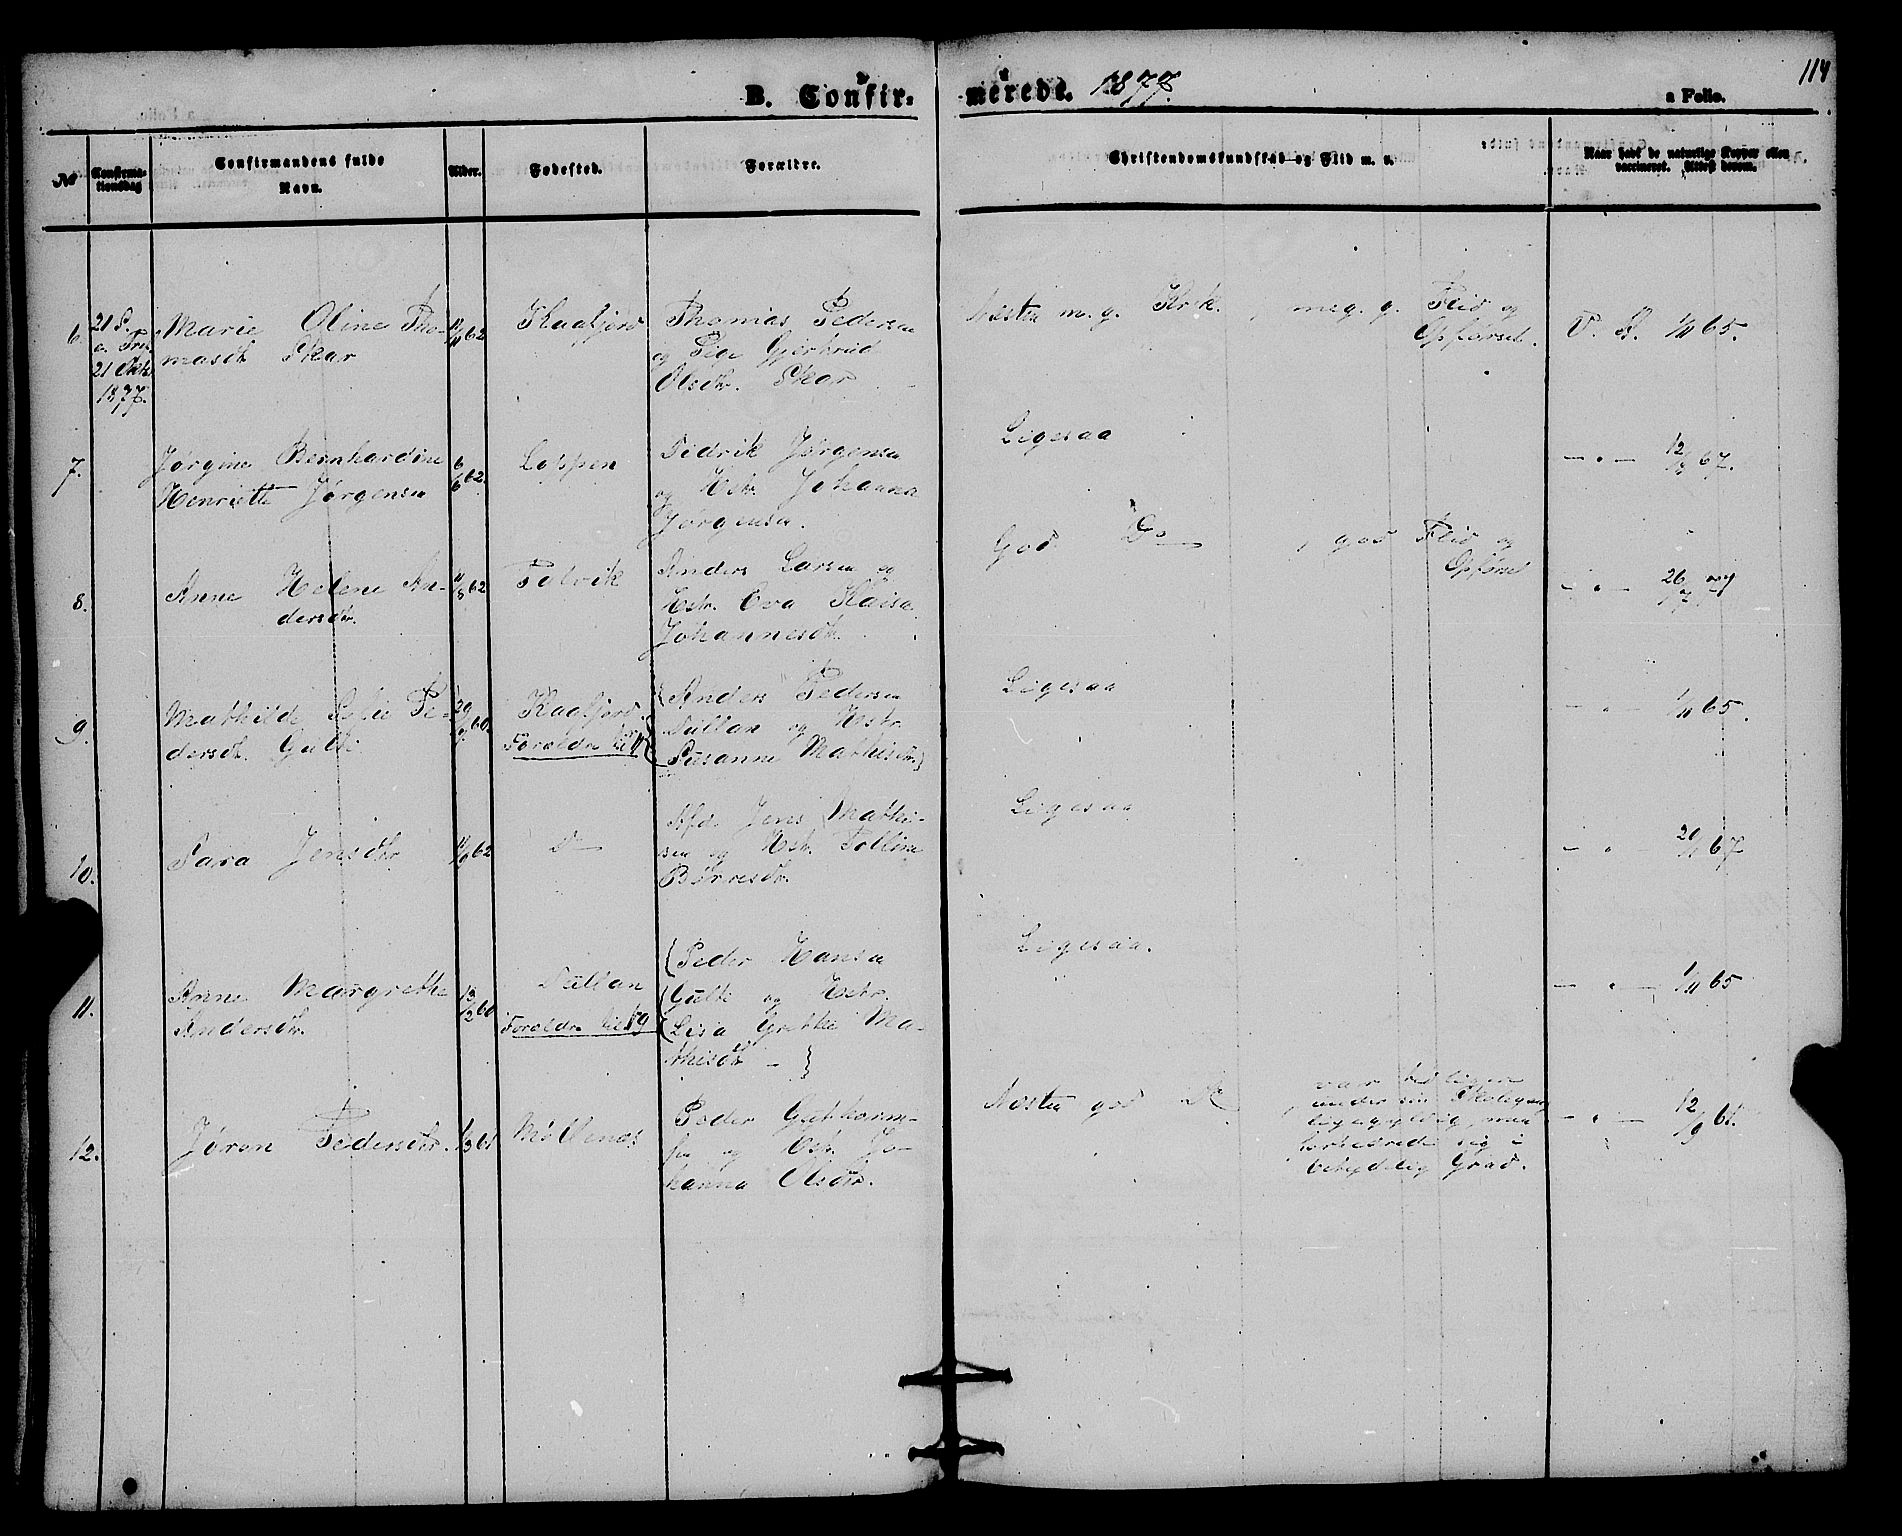 B. Confir-
merede. 1877.
a Folio.
114
№
Confirma-
tionsdag
Confirmandens fulde
Navn.
Alder.
Fødested.
Forældre.
Christendomskundskab og Flid m. v.
Naar havt de naturlige Kopper eller
vaccineret. Attest derom.
6.
21 S.
a. Trin.
21 Oktr.
1877.
Marie Oline Tho-
masdtr. Skar
62
Kaafjord
Thomas Pedersen
og Gjertrud
Olsdtr. Skar
Næsten m. g. Krk. , meg. g. Flid og
Opførsel.
V. A. 1/11 65.
7.
Jørgine Bernhardine
Henriette Jørgensen
6/6 62
Loppen
Didrik Jørgensen
og Hstr. Johanna
Jørgensen.
Ligesaa
— " — 67.
8.
Anne Helene An-
dersdtr.
62
Talvik
Anders Larsen og
Hstr. Eva Kaisa
Johannesdtr.
God Do — , god Flid og
Opførsel
— " — 26
9.
Mathilde Sofie Pe-
dersdtr. Gulte
29 60
Kaafjord.
Forældre til 11
Anders Pedersen
Dullan og Hstr.
Susanne Mathisdtr.
Ligesaa
— " — 1/11 65.
10.
Sara Jensdtr.
62
Do —
Afd. Jens Mathi-
sen og Hstr.
Ligesaa
— " — 67
11.
Anne Margrethe
Andersdtr.
13/2 60
Dullan
Forældre til 9
Peder Hansen
Gulte og Hstr.
Lisa Grethe Ma-
thisdtr. —
Ligesaa.
— " — 1/11 65
12.
Jøran Pedersdtr.
61
Møllenes
Peder Guttorm-
sen og Hstr. Jo-
hanna Olsdtr.
Næsten god Do , var tidligere
under sin Skolegang
ligegyldig, men
forbedrede sig i
betydelig Grad.
— " — 12/9 61.